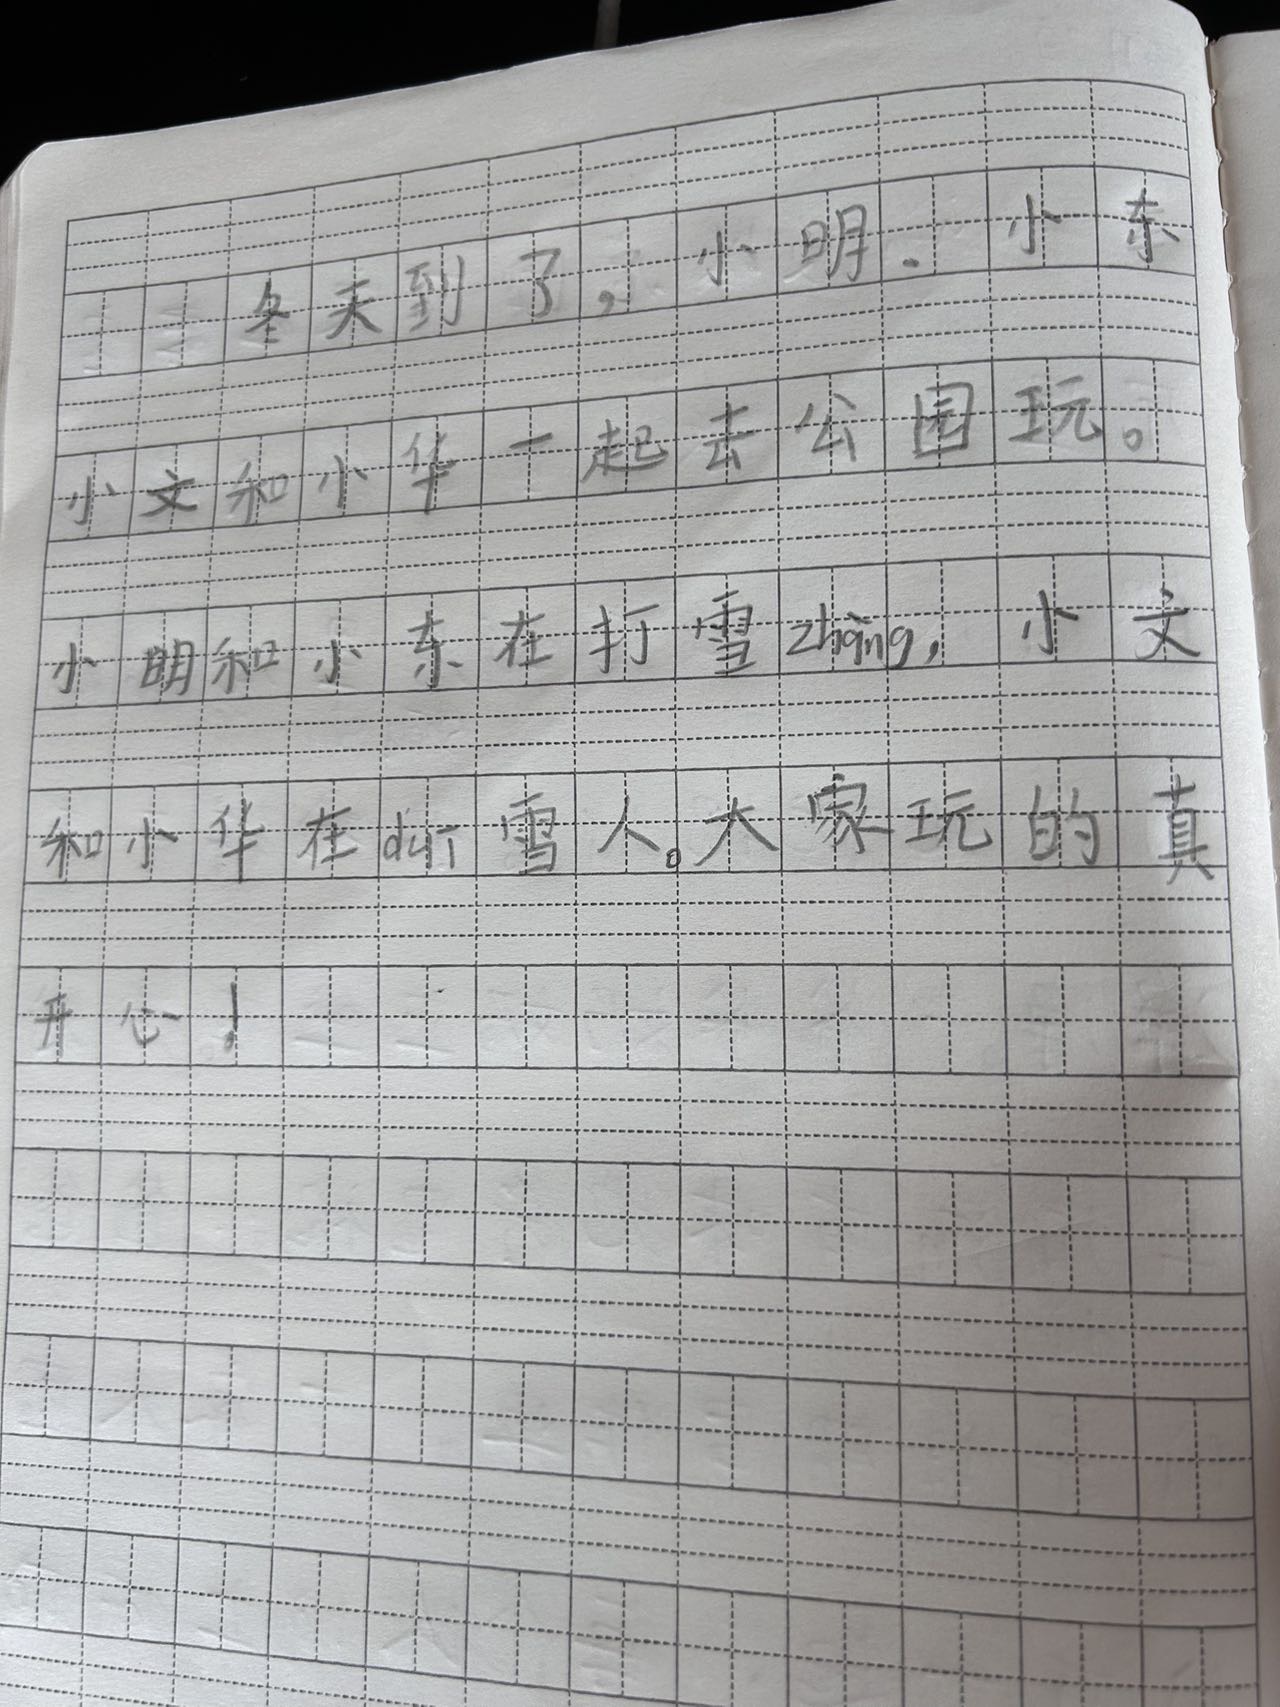 冬天到了，小明、小东
小文和小华一起去公园玩。
小明和小东在打雪zhàng，小文
和小华在duī雪人。大家玩的真
开心！